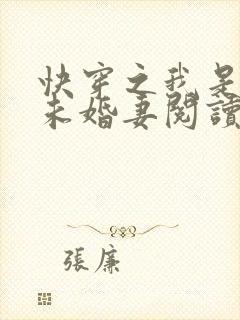 快穿之我是
未婚妻閱讀
張廉